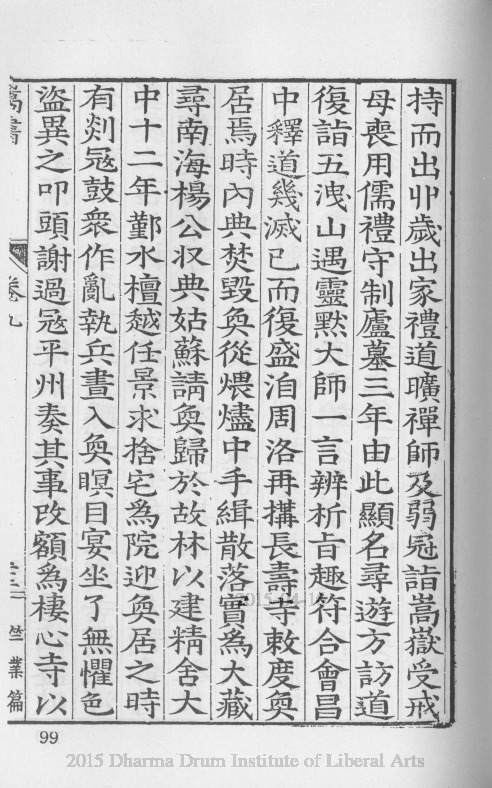 持而出丱歲出家禮道曠禪師及弱冠詣嵩嶽受戒
母喪用儒禮守制廬墓三年由此顯名尋遊方訪道
復詣五洩山遇靈默大師一言辨析旨趣符合會昌
中釋道幾滅已而復盛洎周洛再搆長壽寺敕度奐
居焉時內典焚毀奐從煨燼中手緝散落實為大藏
尋南海楊公収典姑蘇請奐歸於故林以建精舍大
中十二年鄞水檀越任景求捨宅為院迎奐居之時
有剡冦鼓衆作亂執兵晝入奐瞑目宴坐了無懼色
盜異之叩頭謝過冦平州奏其事改額為棲心寺以
卷九
竺業篇
99
2015 Dharma Drum Institute of Liberal Arts